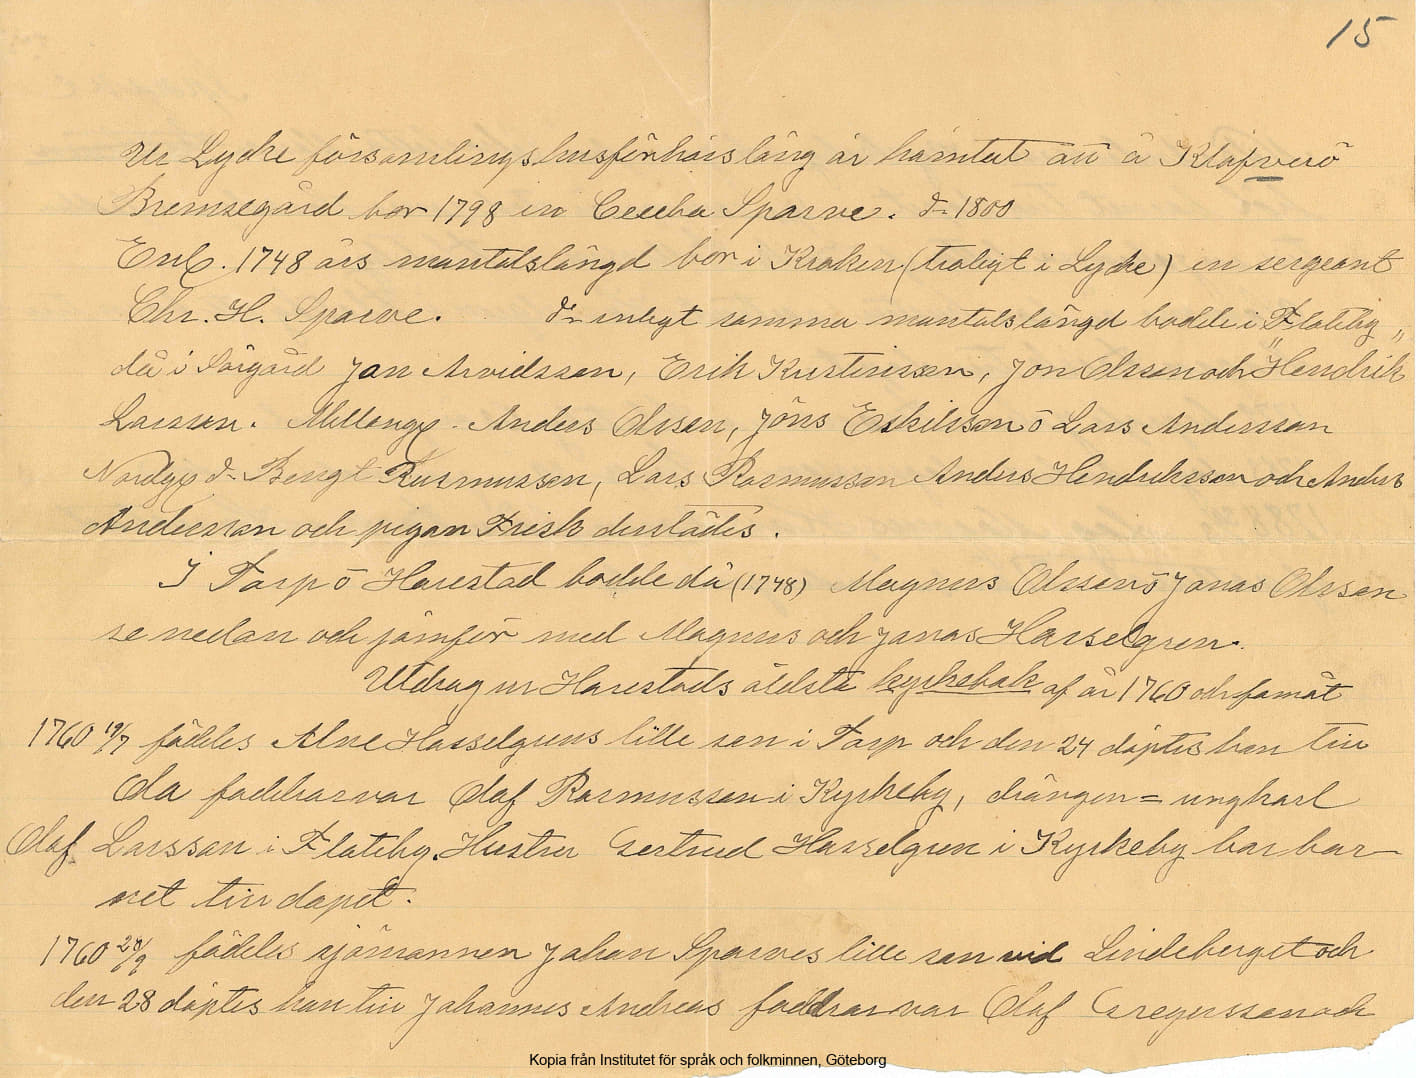 15
Ur Lycke församlings husförhörslängd är hämtat att å Klåfverö
Bremsegård bor 1798 en Cecilia Sparve. d= 1800
Enl. 1748 års mantalslängd bor i Kroken (troligt i Lycke) en sergeant
Chr. H. Sparve. d= enligt samma mantalslängd bodde i Flateby „
då i Sörgård Jon Arvidsson, Erik Kristinsson, Jon Olsson och "Hendrik
Larsson. Mellangg. Anders Olsson, Jöns Eskilsson o Lars Andersson
Nordgg d= Bengt Rasmussen, Lars Rasmusson Anders Hendriksson och Anders
Andersson och pigan Frisk derstädes.
I Torp o Harestad bodde då (1748) Magnus Olsson o Jonas Olsson
se nedan och jämför med Magnus och Jonas Hasselgren.
Utdrag ur Harestads äldsta kyrkobok af år 1760 och framåt
1760 19/7 föddes Alne Hasselgrens lille son i Torp och den 24 döptes han till
Ola faddrar var Olaf Rasmusson i Kyrkeby, drängen = ungkarl
Olaf Larsson i Flateby. Hustru Gertrud Hasselgren i Kyrkeby bar bar-
net till dopet.
1760 20/9 föddes sjömannen Johan Sparves lille son vid Lindeberget och
den 28 döptes han till Johannes Andreas faddrar var Olaf Gregersson och
Kopia från Institutet för språk och folkminnen, Göteborg